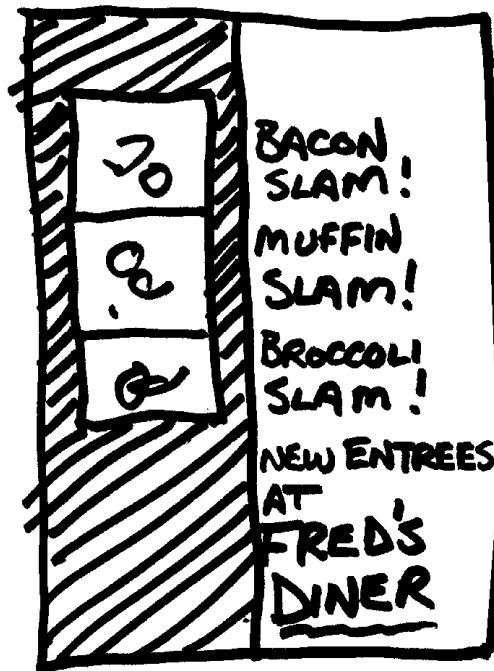 BACON
SLAM!
MUFFIN
SLAM!
BROCCOLI
SLAM!
NEW ENTREES
AT
FRED'S
DINER